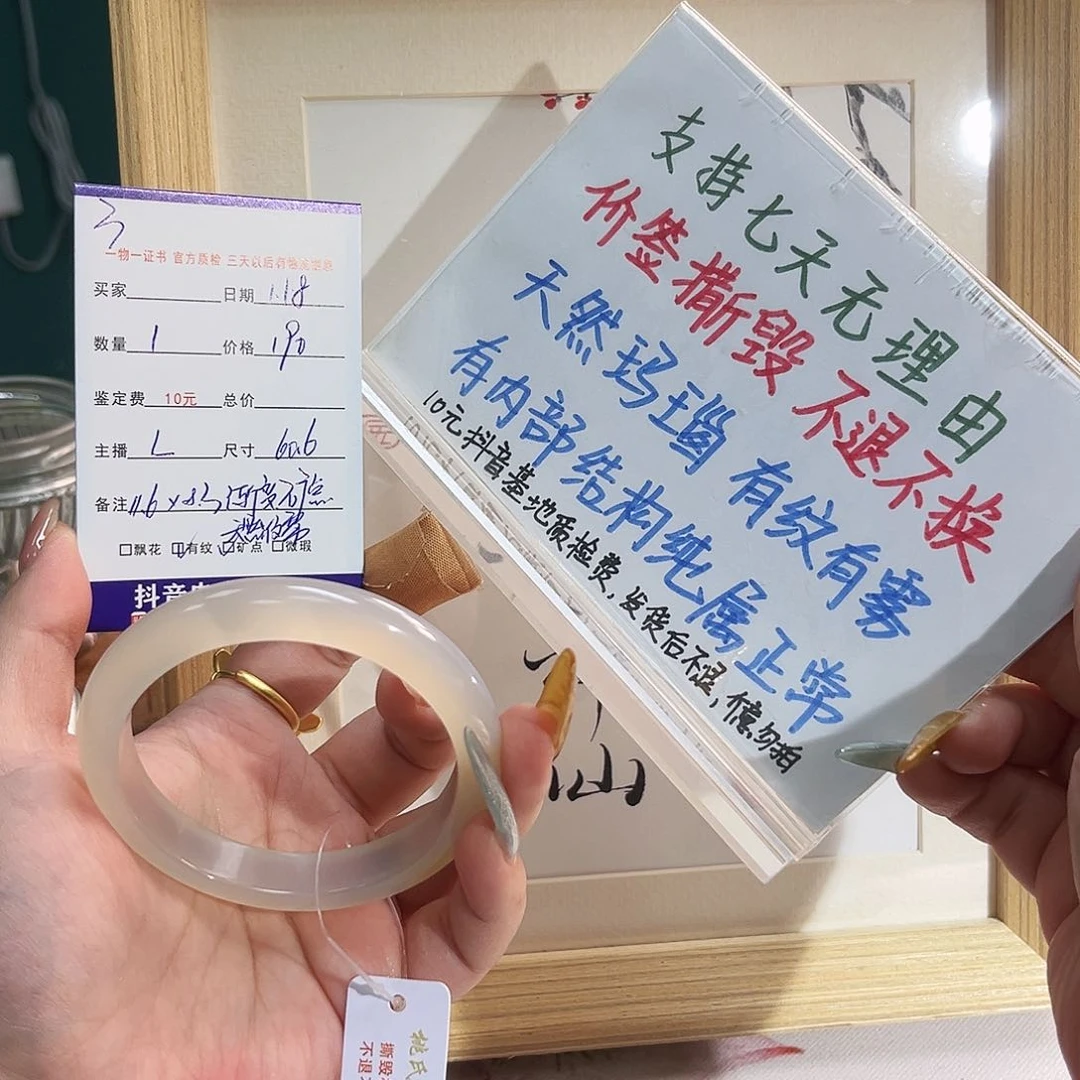 一物一证书 官方质检 三天以后有
买家 日期 1.18
数量 1 价格 190
鉴定费 10元 总价
主播 L 尺寸 60.6
备注
飘花 有纹 矿点 微瑕
抖音
支持七天无理由
价签撕毁 不退不换
天然玛瑙 有纹有雾
有内部结构纯属正常
10元抖音基地质检费,发货后不退,慎勿拍
姚氏
撕毁
不退
山